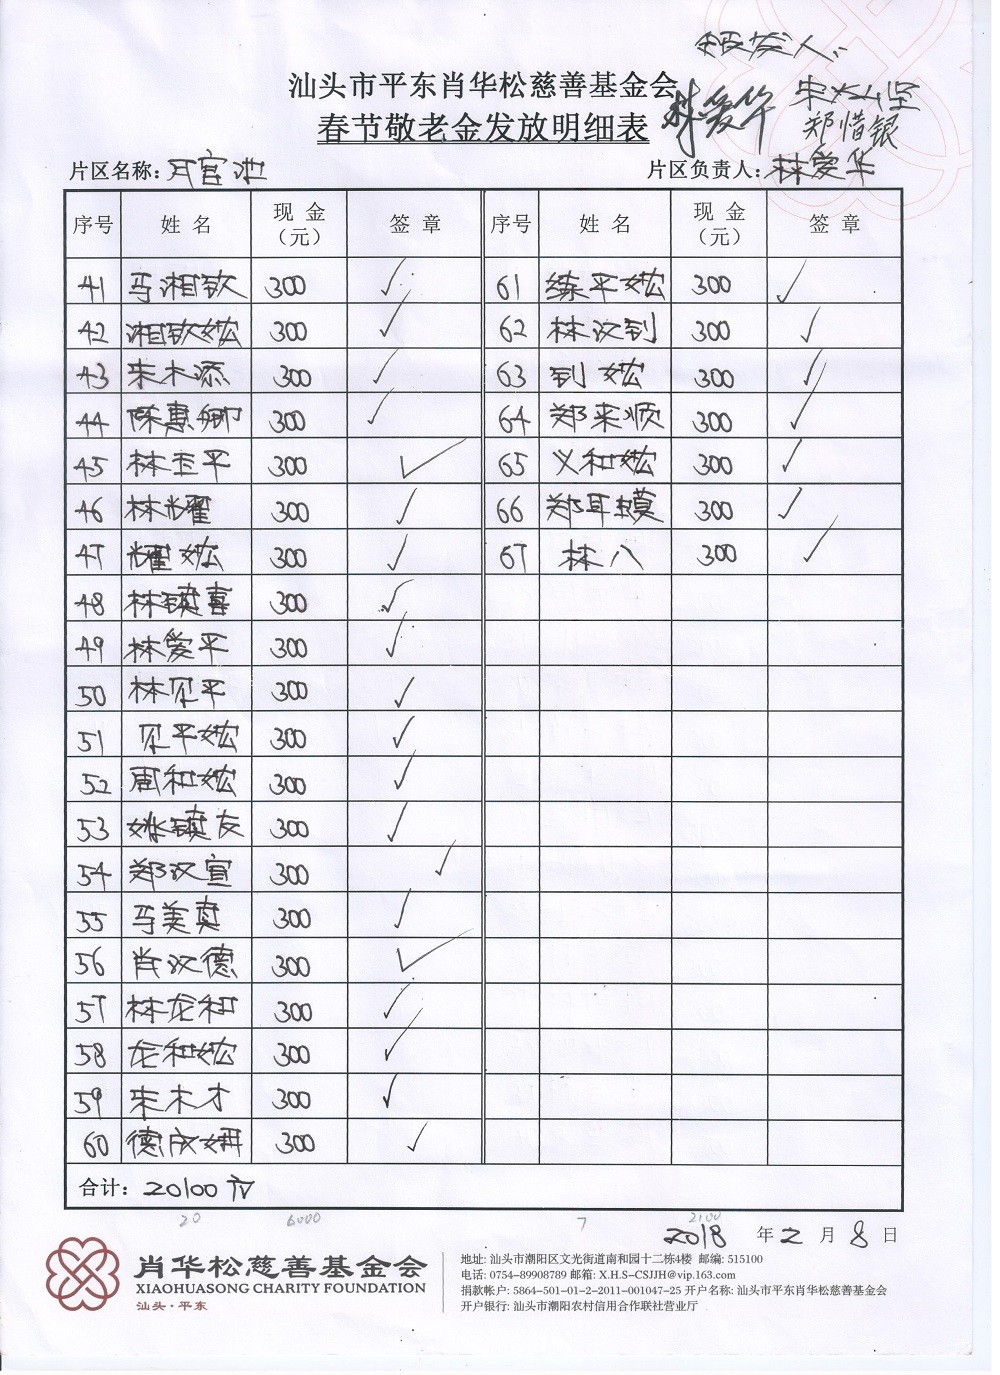 派发人:
汕头市平东肖华松慈善基金会
林爱华 宋
春节敬老金发放明细表
郑惜银
片区名称: 宫池 片区负责人: 林爱华
序号 姓名 现金（元） 签章 序号 姓名 现金（元） 签章
41 马湘钦 300 ✓ 61 练平 300 ✓
42 湘钦 300 ✓ 62 林汉钊 300 ✓
43 朱木添 300 ✓ 63 钊 300 ✓
44 陈惠卿 300 ✓ 64 郑来顺 300 ✓
45 林 平 300 ✓ 65 义和 300 ✓
46 林耀 300 ✓ 66 郑耳 300 ✓
47 耀 300 ✓ 67 林八 300 ✓
48 林镇喜 300 ✓
49 林爱平 300 ✓
50 林见平 300 ✓
51 见平 300 ✓
52 周和 300 ✓
53 姚镇友 300 ✓
54 郑汉宣 300 ✓
55 马美真 300 ✓
56 肖汉德 300 ✓
57 林龙和 300 ✓
58 龙和 300 ✓
59 朱木才 300 ✓
60 德成 300 ✓
合计: 20100元
20 6000 7 2100
2018 年 2 月 8 日
肖华松慈善基金会
XIAOHUASONG CHARITY FOUNDATION
汕头·平东
地址: 汕头市潮阳区文光街道南和园十二栋4楼 邮编: 515100
电话: 0754-89908789 邮箱: X.H.S-CSJJH@vip.163.com
捐款帐户: 5864-501-01-2-2011-001047-25 开户名称: 汕头市平东肖华松慈善基金会
开户银行: 汕头市潮阳农村信用合作联社营业厅